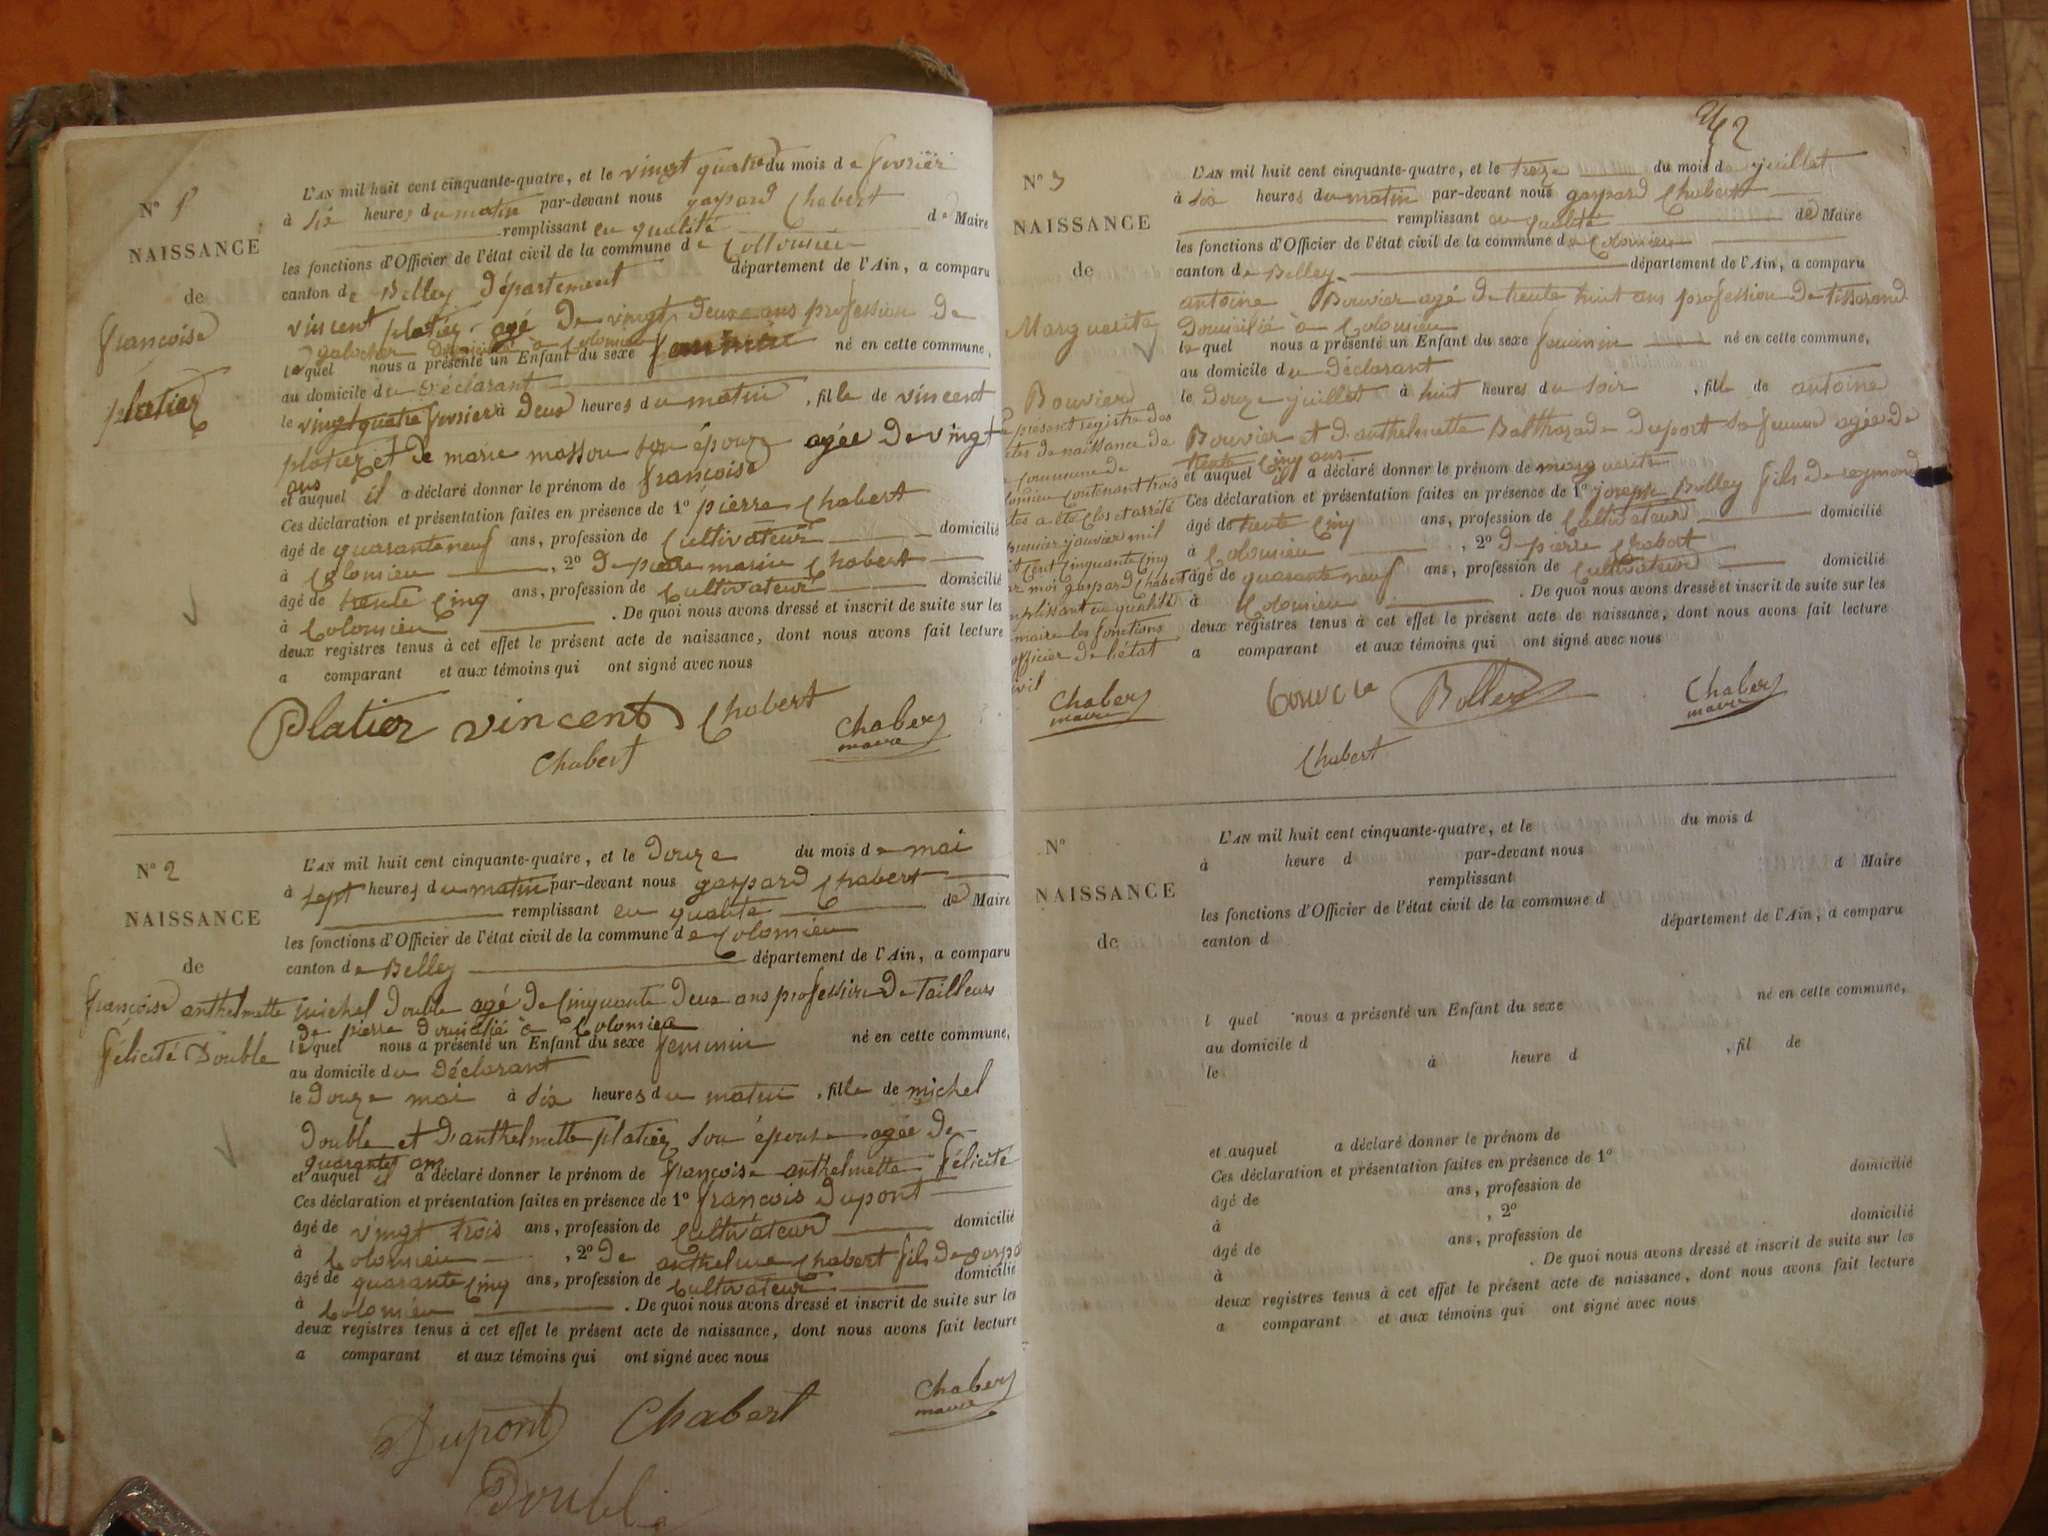 N° 1
NAISSANCE
de
françoise
platier
L'AN mil huit cent cinquante-quatre, et le vingt quatre du mois de fevrier
à six heures du matin par-devant nous gaspard Chabert
remplissant en qualité de Maire
les fonctions d'Officier de l'état civil de la commune de Collomieu
canton de Belley Département département de l'Ain, a comparu
vincent platier agé De vingt Deux ans profession De
galocher Domicilié à Colomieu
lequel nous a présenté un Enfant du sexe feminin né en cette commune,
au domicile du Déclarant
le vingt quatre fevrier à Deux heures du matin, fille de vincent
platier et De marie masson son épouse agée De vingt
ans
et auquel il a déclaré donner le prénom de françoise
Ces déclaration et présentation faites en présence de 1° pierre Chabert
âgé de quarante neuf ans, profession de Cultivateur domicilié
à Colomieu, 2° De pierre marin Chabert
âgé de trente Cinq ans, profession de Cultivateur domicilié
à Colomieu. De quoi nous avons dressé et inscrit de suite sur les
deux registres tenus à cet effet le présent acte de naissance, dont nous avons fait lecture
a comparant et aux témoins qui ont signé avec nous
Platier vincent Chabert
Chabert
Chabert
maire
N° 2
NAISSANCE
de
françoise anthelmette
félicité Double
L'AN mil huit cent cinquante-quatre, et le Douze du mois de mai
à sept heures du matin par-devant nous gaspard Chabert
remplissant en qualité de Maire
les fonctions d'Officier de l'état civil de la commune de Colomieu
canton de Belley département de l'Ain, a comparu
michel Double agé De Cinquante Deux ans profession De Tailleur
De pierre Domicilié à Colomieu
lequel nous a présenté un Enfant du sexe feminin né en cette commune,
au domicile du Déclarant
le Douze mai à six heures du matin, fille de michel
Double et D'anthelmette platier son épouse agée De
quarante ans
et auquel il a déclaré donner le prénom de françoise anthelmette félicité
Ces déclaration et présentation faites en présence de 1° françois Dupont
âgé de vingt trois ans, profession de Cultivateur domicilié
à Colomieu, 2° De anthelme Chabert fils De
âgé de quarante Cinq ans, profession de Cultivateur domicilié
à Colomieu. De quoi nous avons dressé et inscrit de suite sur les
deux registres tenus à cet effet le présent acte de naissance, dont nous avons fait lecture
a comparant et aux témoins qui ont signé avec nous
Dupont Chabert
Chabert
maire
Double
2
N° 3
NAISSANCE
de
Marguerite
Bouvier
L'AN mil huit cent cinquante-quatre, et le treze du mois de juillet
à six heures du matin par-devant nous gaspard Chabert
remplissant en qualité de Maire
les fonctions d'Officier de l'état civil de la commune de Colomieu
canton de Belley département de l'Ain, a comparu
antoine Bouvier agé De trente huit ans profession De tisserand
Domicilié à Colomieu
lequel nous a présenté un Enfant du sexe feminin né en cette commune,
au domicile du Déclarant
le Douze juillet à huit heures du soir, fille de antoine
Bouvier et D'anthelmette Balthazarde Dupont sa femme agée De
trente Cinq ans
et auquel il a déclaré donner le prénom de marguerite
Ces déclaration et présentation faites en présence de 1° joseph Bolley fils De reymond
âgé de trente Cinq ans, profession de Cultivateur domicilié
à Colomieu, 2° D pierre Chabert
âgé de quarante neuf ans, profession de Cultivateur domicilié
à Colomieu. De quoi nous avons dressé et inscrit de suite sur les
deux registres tenus à cet effet le présent acte de naissance, dont nous avons fait lecture
a comparant et aux témoins qui ont signé avec nous
présent registre des
de naissance de
commune de
Contenant trois
a été Clos et arrêté
premier janvier mil
Cent Cinquante Cinq
moi gaspard Chabert
en qualité
maire les fonctions
officier de l'état
Chabert
maire
Bouvier
Chabert
maire
Chabert
N°
NAISSANCE
de
L'AN mil huit cent cinquante-quatre, et le du mois d
à heure d par-devant nous
remplissant d Maire
les fonctions d'Officier de l'état civil de la commune d
canton d département de l'Ain, a comparu
l quel nous a présenté un Enfant du sexe né en cette commune,
au domicile d
le à heure d, fil de
et auquel a déclaré donner le prénom de
Ces déclaration et présentation faites en présence de 1°
âgé de ans, profession de domicilié
à, 2°
âgé de ans, profession de domicilié
à. De quoi nous avons dressé et inscrit de suite sur les
deux registres tenus à cet effet le présent acte de naissance, dont nous avons fait lecture
a comparant et aux témoins qui ont signé avec nous